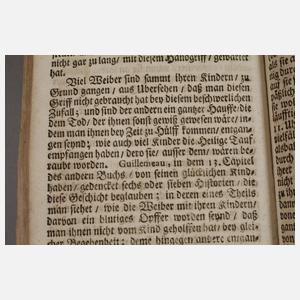 nicht gar zu lang/ mit diesem Handgriff/ gewartet
hat.
Viel Weiber sind sammt ihren Kindern/ zu
Grund gangen/ aus Ubersehen/ daß man diesen
Griff nicht gebraucht hat bey diesem beschwerlichen
Zufall; und sind der andern ein gantzer Hauffe/ die
dem Tod/ der ihnen sonst gewiß gewesen wäre/ in-
dem man ihnen bey Zeit zu Hülff kommen/ entgan-
gen seynd; wie auch viel Kinder die Heilige Tauf
empfangen haben/ dero sie/ ausser dem/ waren be-
raubt worden. Guillemeau; in dem 13. Capitel
des andern Buchs/ von seinen glücklichen Kind-
haben/ gedencket sechs oder sieben Historien/ die
diese Geschicht beglauben; in deren etnes Theils
man siehet/ wie die Weiber mit ihren Kindern/
darvon ein blutiges Opffer worden seynd/ daß
man ihnen nicht vom Kind geholffen hat/ bey glei-
cher Begebenheit; deme hingegen andere entgan-